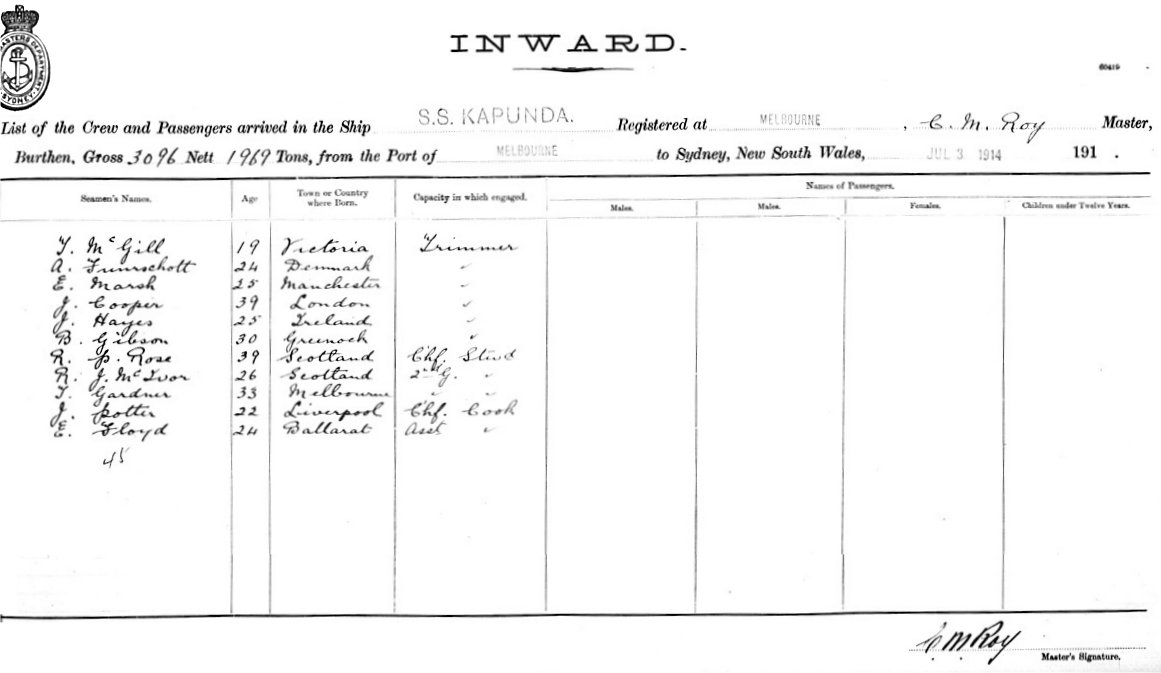 MASTERS DEPARTMENT SYDNEY
INWARD.
60419
List of the Crew and Passengers arrived in the Ship S.S. KAPUNDA. Registered at MELBOURNE, C. M. Roy Master,
Burthen, Gross 3096 Nett 1969 Tons, from the Port of MELBOURNE to Sydney, New South Wales, JUL 3 1914 191 .
Seamen's Names. Age Town or Country where Born. Capacity in which engaged. Names of Passengers.
Males. Males. Females. Children under Twelve Years.
T. McGill 19 Victoria Trimmer
A. 24 Denmark "
E. Marsh 25 Manchester "
J. Cooper 39 London "
J. Hayes 25 Ireland "
B. Gibson 30 Greenock "
R. P. Rose 39 Scotland Chf. Stwd
R. J. McIvor 26 Scotland 2nd G. "
T. Gardner 33 Melbourne " "
J. Potter 22 Liverpool Chf. Cook
E. Floyd 24 Ballarat Asst "
45
C. M. Roy
Master's Signature.